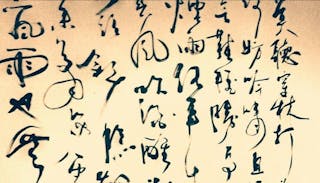 莫聽穿林打
何妨吟嘯且
芒鞋輕勝馬
煙雨任平生
春風吹酒醒
頭
風雨也無